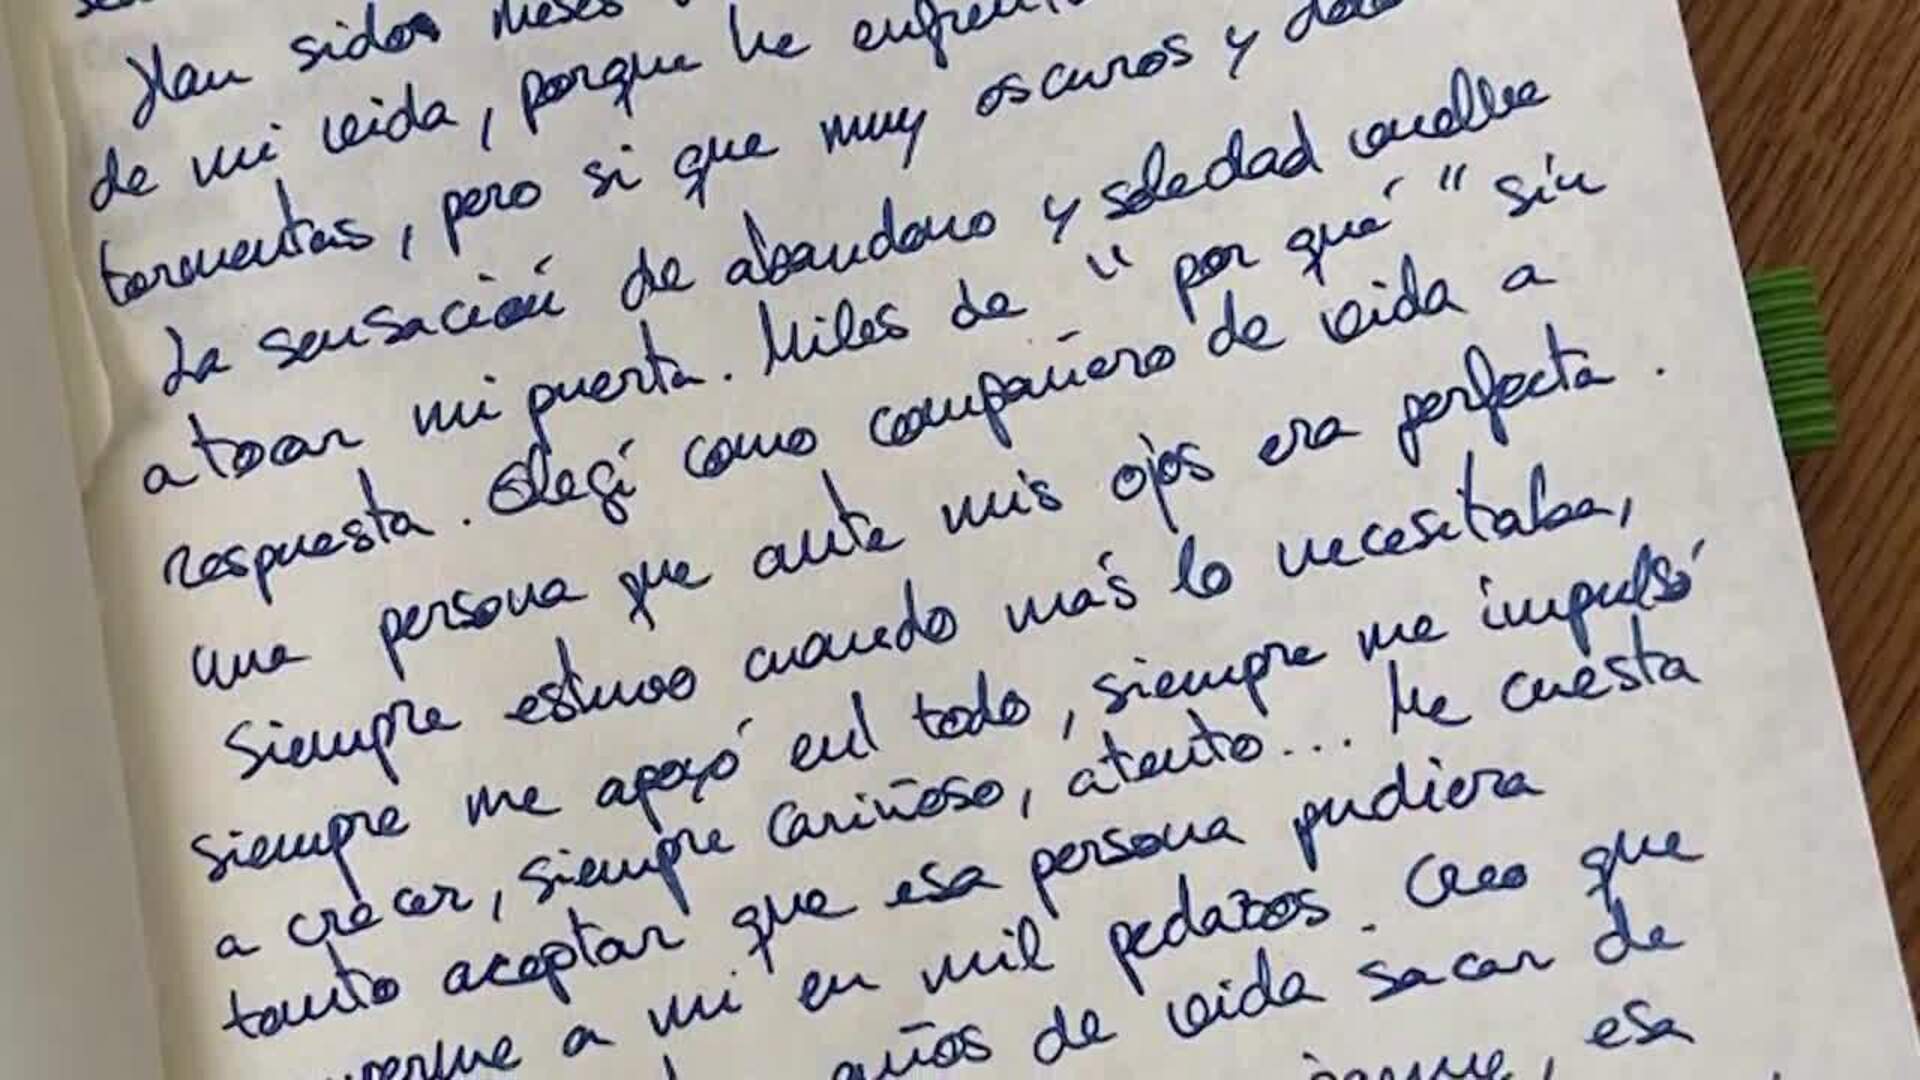 Han sidos meses
de mi vida, porque he
tormentas, pero si que muy oscuros y
La sensación de abandono y soledad vuelve
a tocar mi puerta. Miles de "por qué" sin
respuesta. Elegí como compañero de vida a
una persona que ante mis ojos era perfecta.
Siempre estuvo cuando más lo necesitaba,
siempre me apoyó en todo, siempre me impulsó
a crecer, siempre cariñoso, atento... Me cuesta
tanto aceptar que esa persona pudiera
a mi en mil pedazos. Creo que
años de vida sacar de
, esa